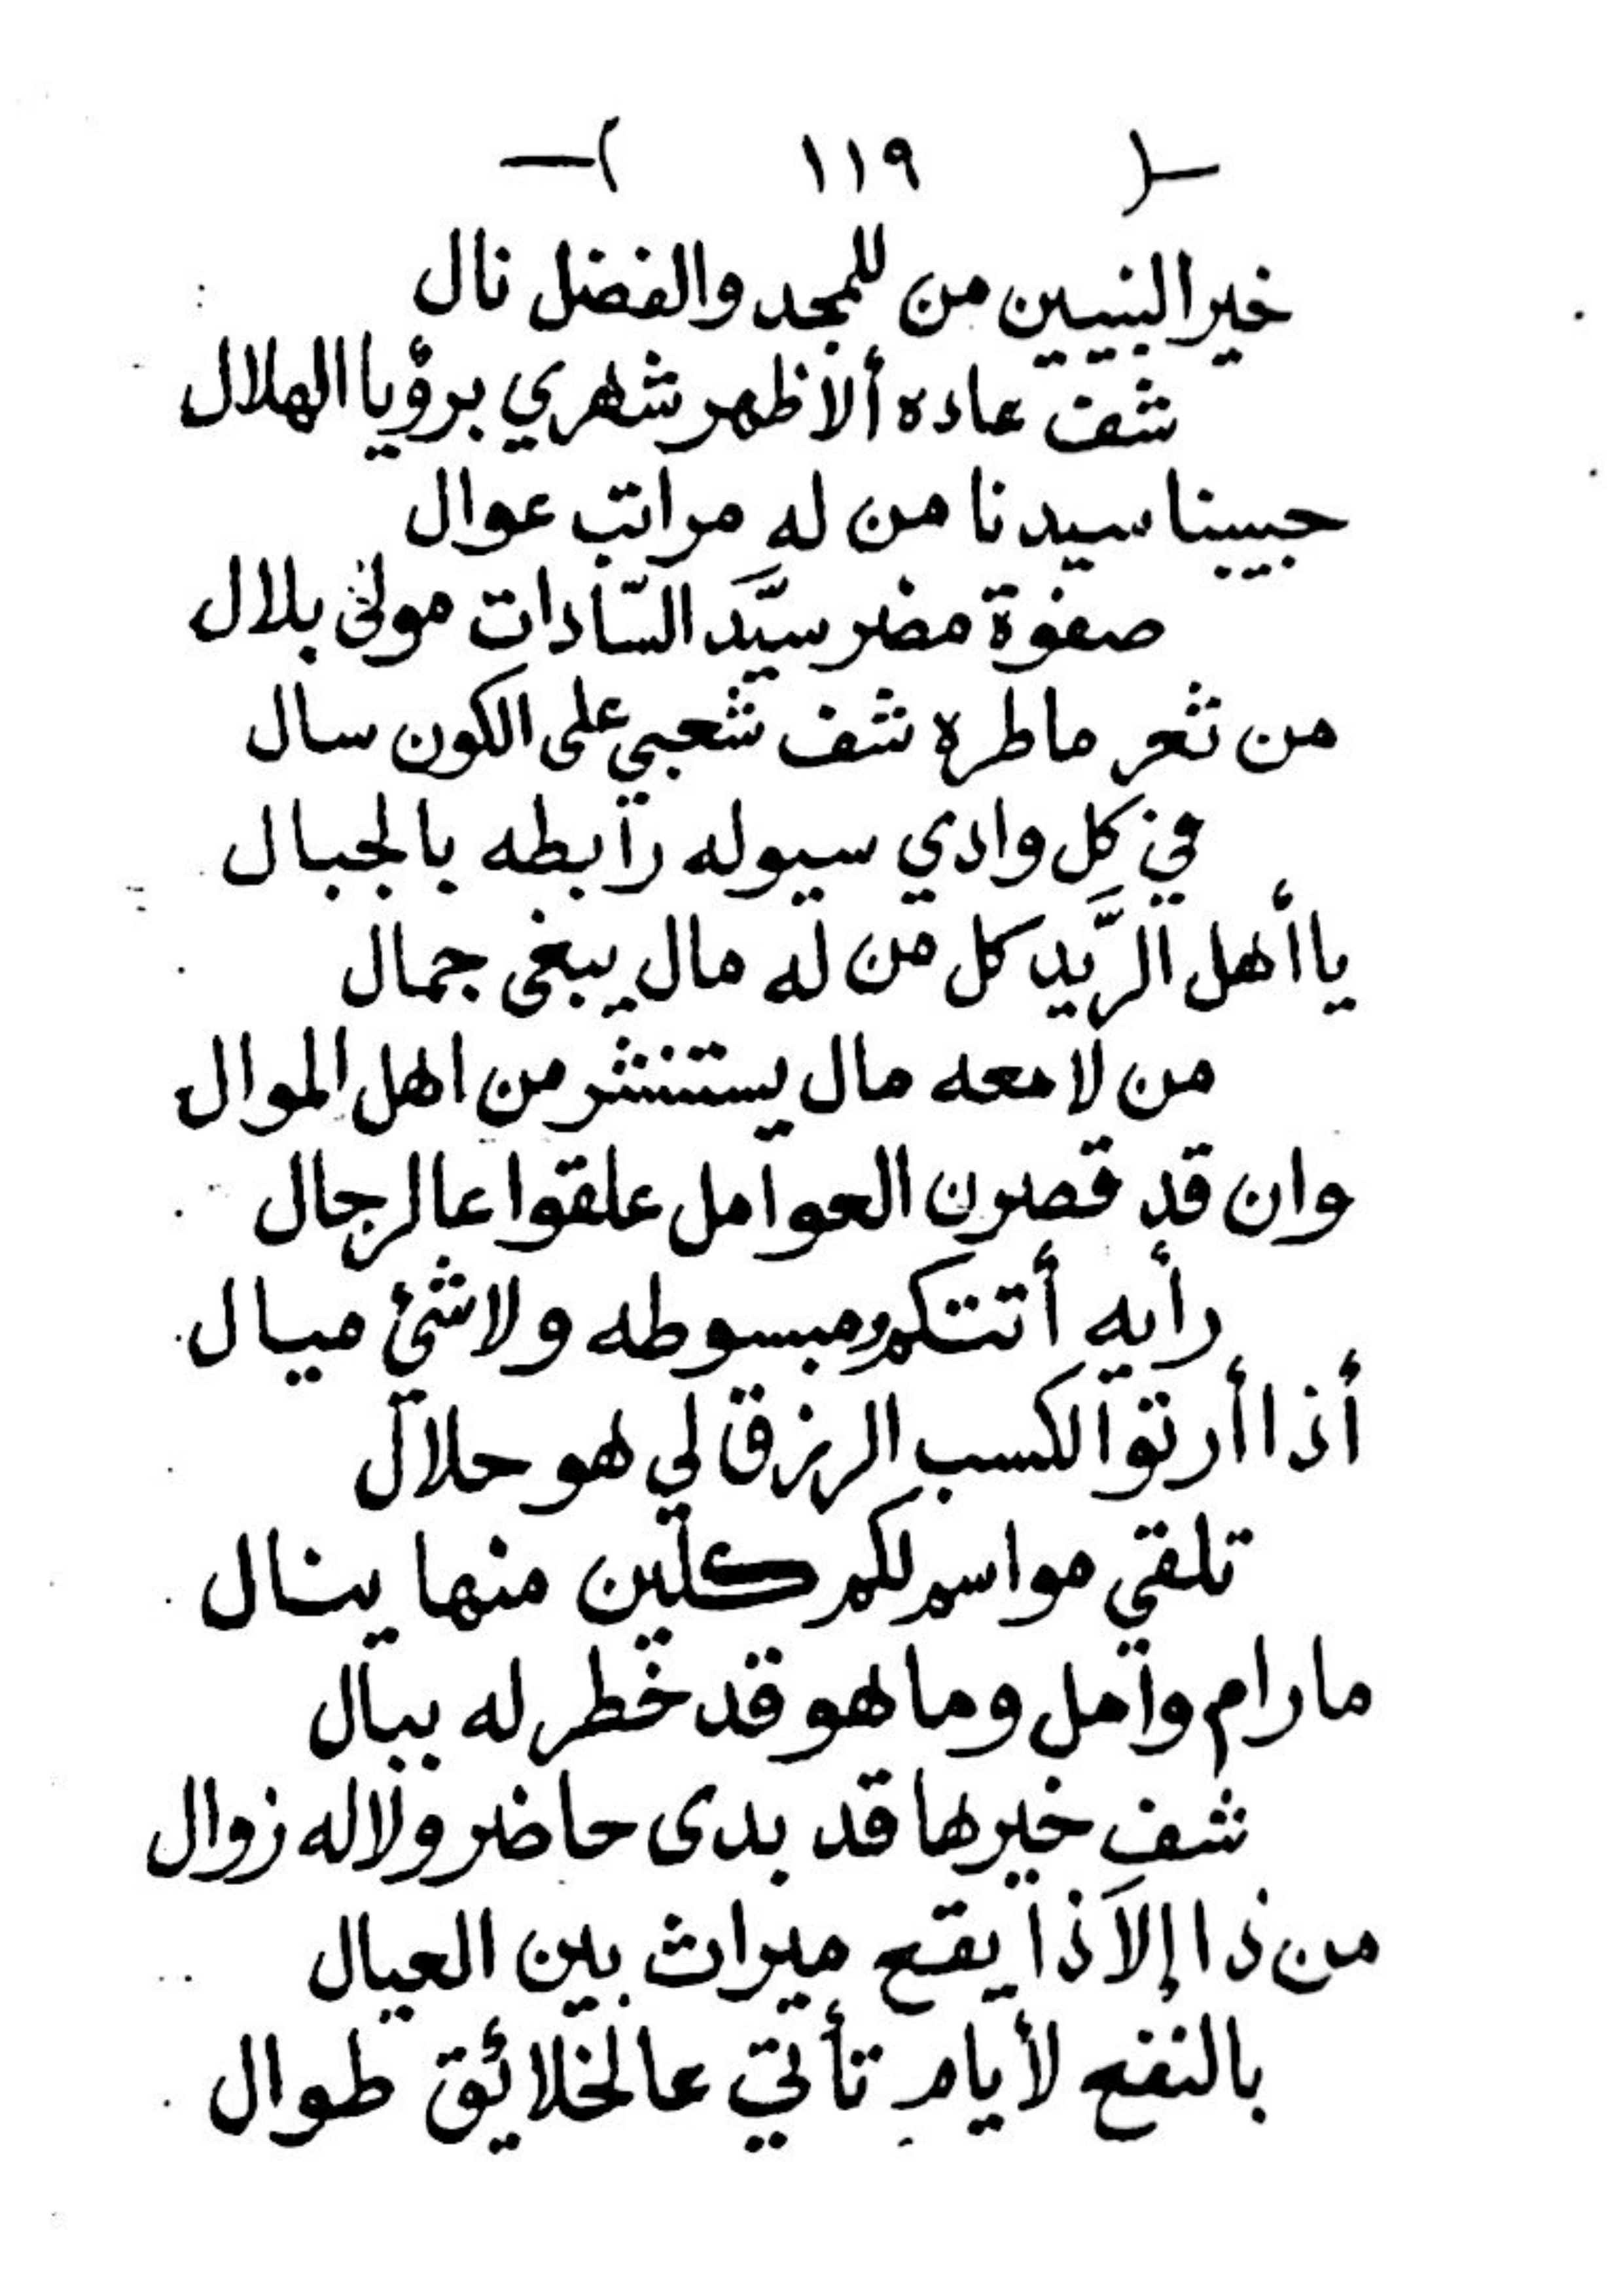 -( ١١٩ )-
خير النبيين من للمجد والفضل نال
شف عاده ألا ظهر شهري برؤيا الهلال
حبيبنا سيدنا من له مراتب عوال
صفوة مضر سيَّد السّادات مولى بلال
من ثعر ماطره شف شعبي على الكون سال
في كل وادي سيوله رابطه بالجبال
يا أهل الرَّيد كل من له مال يبغى جمال
من لا معه مال يستنثر من اهل الموال
وان قد قصرن العوامل علقوا عالرجال
رأيه أتتكم مبسوطه ولاشئ ميال
أذا أرتوا لكسب الرزق لي هو حلال
تلقي مواسم لكم كلين منها ينال
ما رام وآمل وما هو قد خطر له ببال
شف خيرها قد بدى حاضر ولا له زوال
من ذا إلا ذا يقع ميراث بين العيال
بالنفع لأيام تأتي عالخلائق طوال